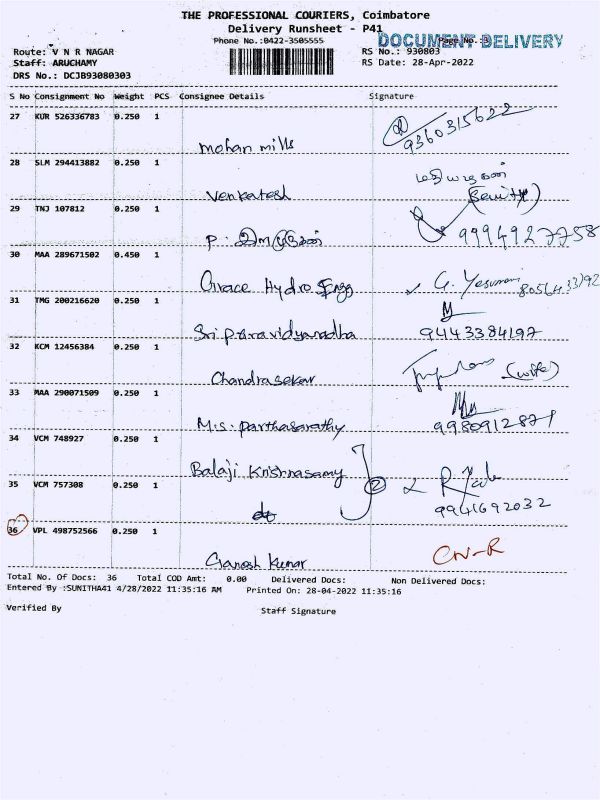 THE PROFESSIONAL COURIERS, Coimbatore
Delivery Runsheet - P41
Phone No.:0422-3505555
DOCUMENT DELIVERY
Page No.:3
Route: V N R NAGAR
RS No.: 930803
Staff: ARUCHAMY
RS Date: 28-Apr-2022
DRS No.: DCJB93080303
S No Consignment No Weight PCS Consignee Details Signature
27 KUR 526336783 0.250 1
mohan mills 9360315622
28 SLM 294413882 0.250 1
Venkatesh
29 TNJ 107812 0.250 1
P. 9994927758
30 MAA 289671502 0.450 1
Grace Hydro Engg G. 8056433792
31 TMG 200216620 0.250 1
Sri paravidyanadha 9443384197
32 KCM 12456384 0.250 1
Chandrasekar (wife)
33 MAA 290071509 0.250 1
M.S. Parthasarathy 9980912871
34 VCM 748927 0.250 1
Balaji Krishnasamy
35 VCM 757308 0.250 1
do 2 9941692032
36 VPL 498752566 0.250 1
Ganesh Kumar CN-R
Total No. Of Docs: 36 Total COD Amt: 0.00 Delivered Docs: Non Delivered Docs:
Entered By :SUNITHA41 4/28/2022 11:35:16 AM Printed On: 28-04-2022 11:35:16
Verified By Staff Signature